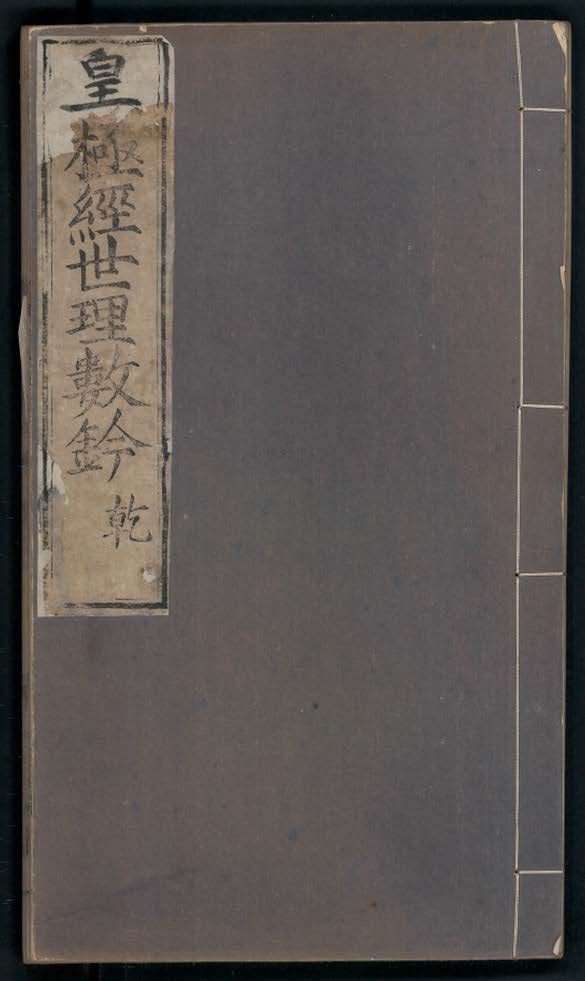 皇極經世理數鈐
乾